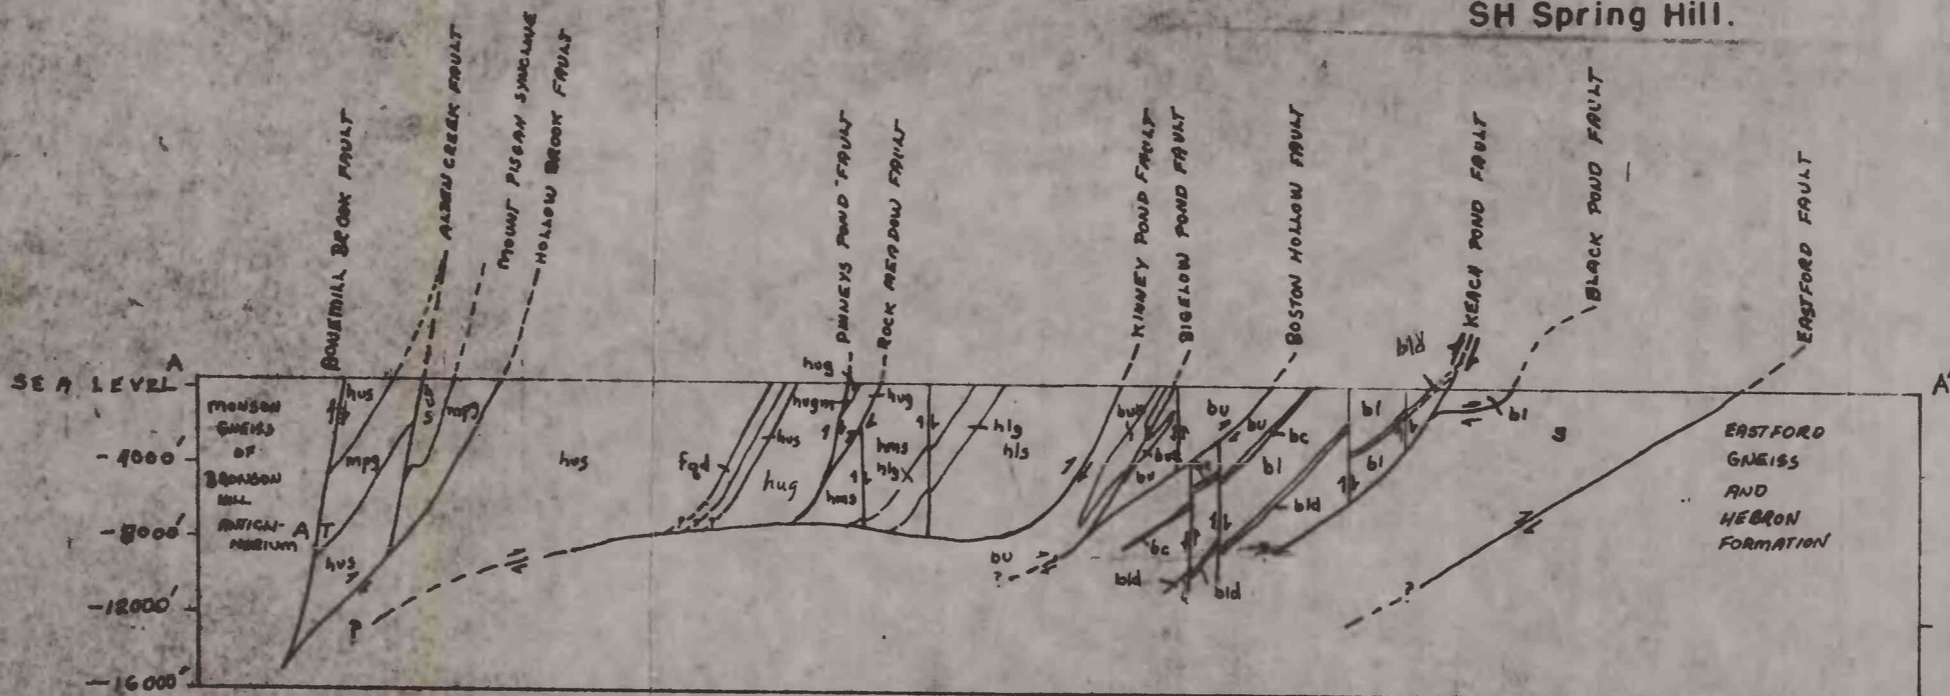 SH Spring Hill.
BONEMILL BROOK FAULT
ALDEN CREEK FAULT
MOUNT PISGAH SYNCLINE
HOLLOW BROOK FAULT
PHNEYS POND FAULT
ROCK MEADOW FAULT
KINNEY POND FAULT
BIGELOW POND FAULT
BOSTON HOLLOW FAULT
KEACH POND FAULT
BLACK POND FAULT
EASTFORD FAULT
A
A'
SEA LEVEL
-4000'
-8000'
-12000'
-16000'
MONSON
GNEISS
OF
BRONSON
HILL
ANTICLI-
NORIUM
A T
hus
mpg
hus
mpg
hus
hus
fqd
hus
hugm
hug
hug
hug
hms
hlg
hms
hlg
hls
bu
?
bu
bu
bu
bc
bl
bc
bld
bld
bld
bl
bl
bl
g
?
?
EASTFORD
GNEISS
AND
HEBRON
FORMATION